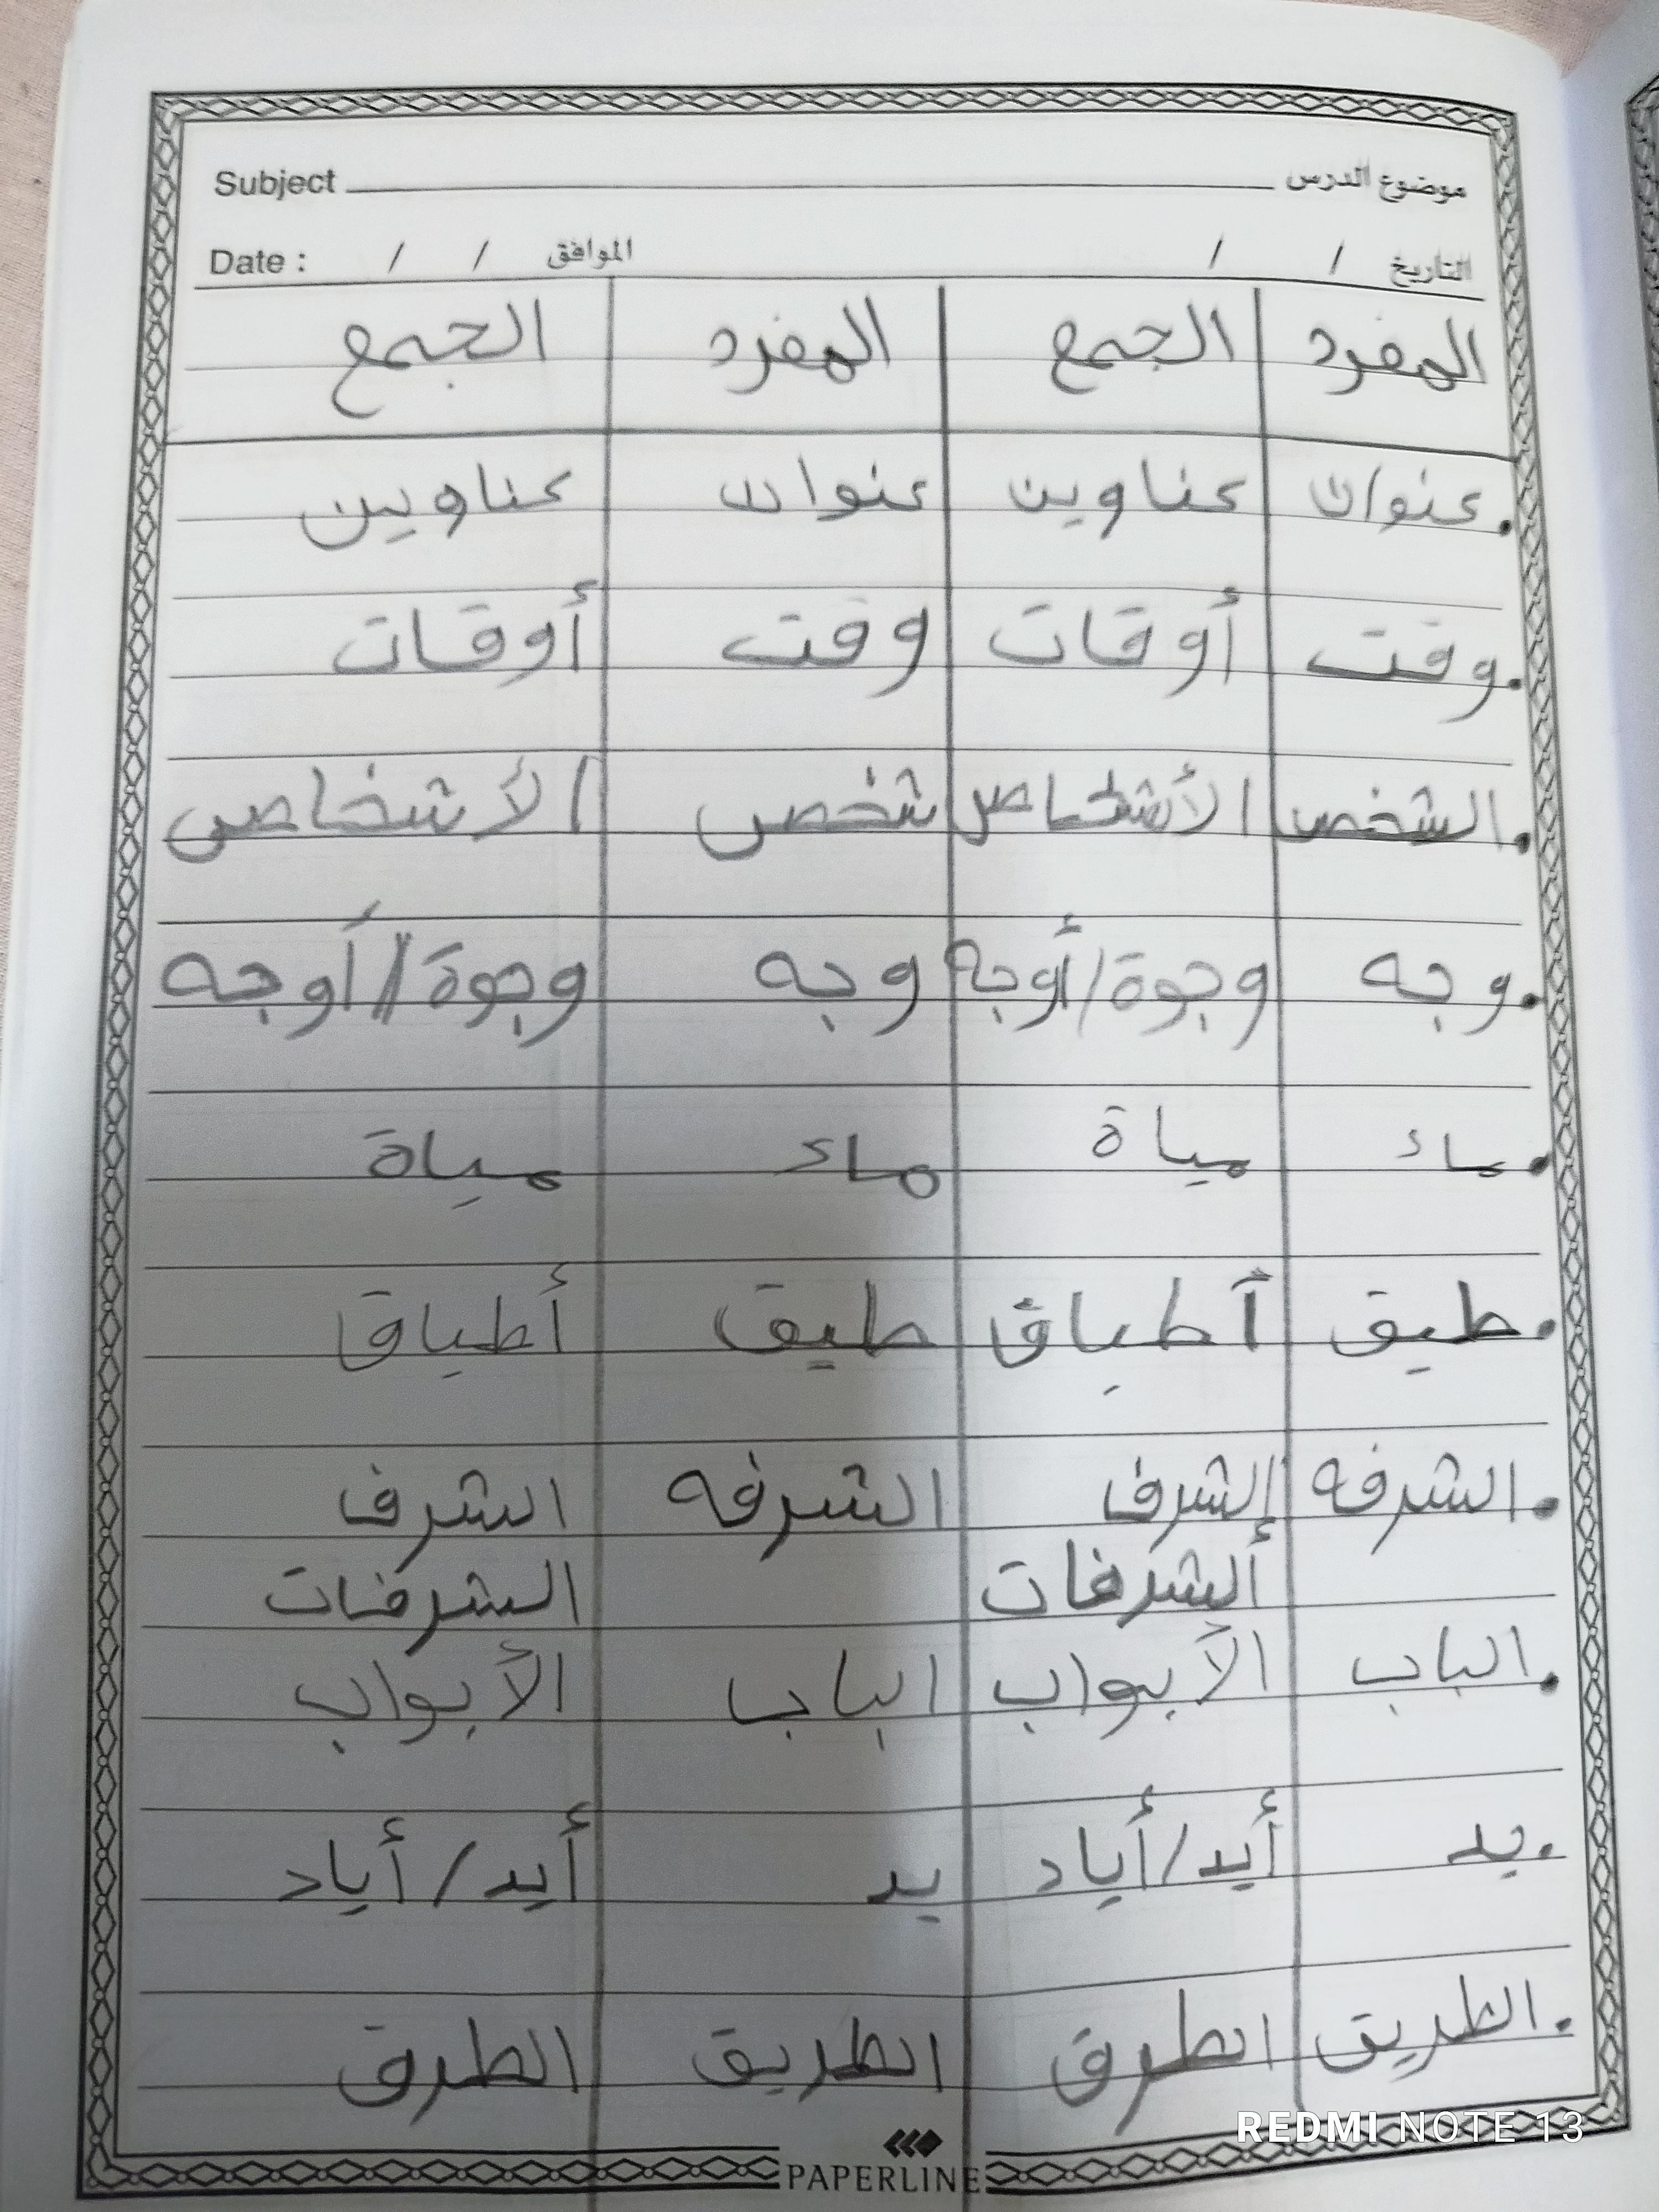 موضوع الدرس Subject
التاريخ / / الموافق / / Date :
المفرد الجمع المفرد الجمع
عنوان عناوين عنوان عناوين
وقت أوقات وقت أوقات
الشخص الأشخاص شخص الأشخاص
وجه وجوة/أوجه وجه وجوة/أوجه
ماء مياة ماء مياة
طبق أطباق طبق أطباق
الشرفه الشرف الشرفه الشرف
ألشرفات الشرفات
الباب الأبواب الباب الأبواب
يد أيد/أياد يد أيد/أياد
الطريق الطرق الطريق الطرق
PAPERLINE
REDMI NOTE 13